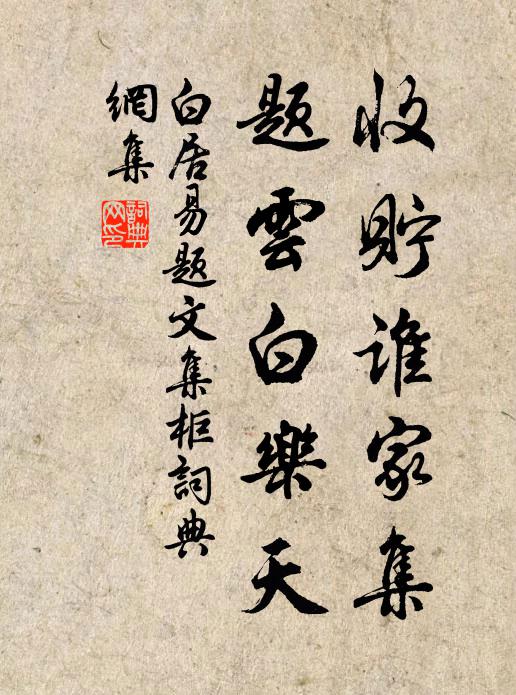 收貯誰家集
題雲白樂天
白居易題文集柜詞典
網集
詞典
网印